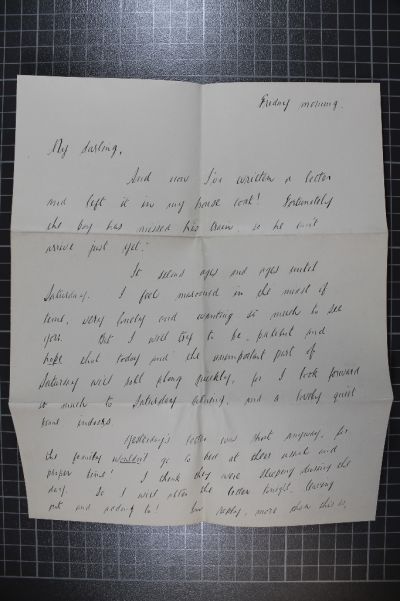 Friday morning.
My darling,
And now I've written a letter
and left it in my house coat! Fortunately
the boy has missed his train, so he isn't
arrive just yet.
It seems ages and ages until
Saturday. I feel marooned in the midst of
time, very lonely and wanting so much to see
you. But I will try to be patient and
hope that today and the unimportant part of
Saturday will roll along quickly, for I look forward
so much to Saturday evening, and a lovely quiet
time indoors.
Yesterday's letter was short anyway, for
the family wouldn't go to bed at their usual and
proper time! I think they were sleeping during the
day. So I will alter the letter tonight, leaving
out and adding to! But really, more than this is,